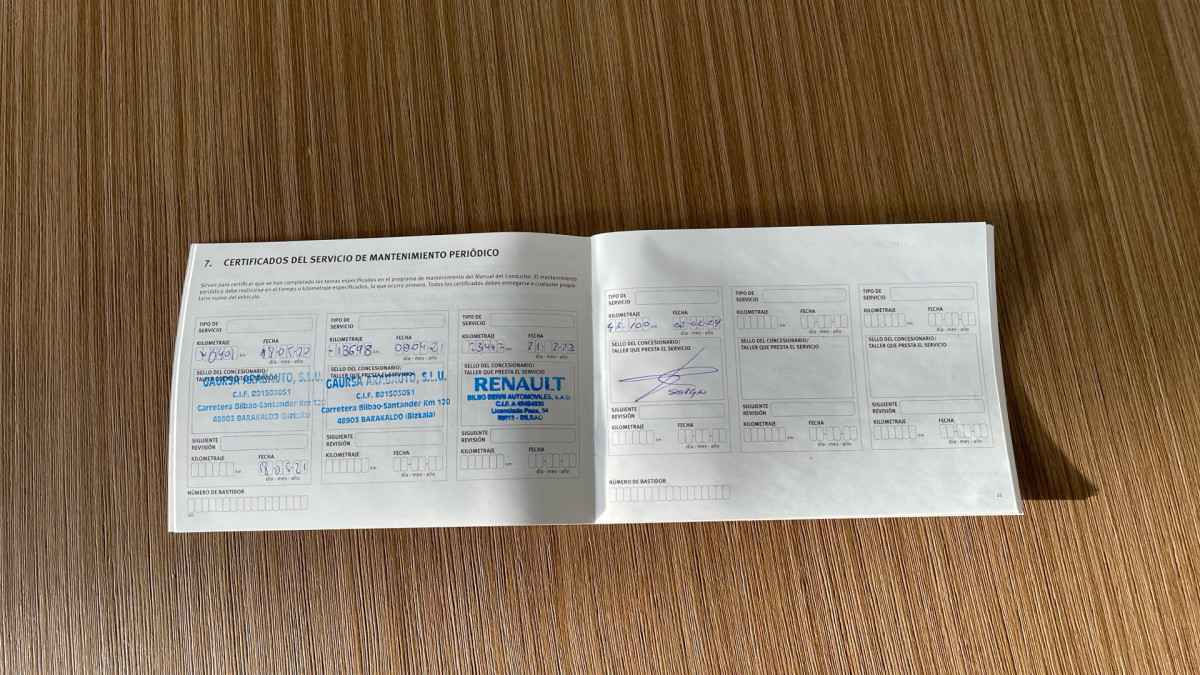 7. CERTIFICADOS DEL SERVICIO DE MANTENIMIENTO PERIÓDICO
Sirven para certificar que se han completado las tareas especificadas en el programa de mantenimiento del Manual del Conductor. El mantenimiento
periódico debe realizarse en el tiempo o kilometraje especificados, lo que ocurra primero. Todos los certificados deben entregarse a cualquier propie-
tario nuevo del vehículo.
TIPO DE
SERVICIO
KILOMETRAJE FECHA
km 18-05-20
día - mes - año
SELLO DEL CONCESIONARIO/
TALLER QUE PRESTA EL SERVICIO
GAURSA ARABAUTO, S.L.U.
C.I.F. B01503051
Carretera Bilbao-Santander Km 120
48903 BARAKALDO (Bizkaia)
SIGUIENTE
REVISIÓN
KILOMETRAJE FECHA
km 18-05-21
día - mes - año
NÚMERO DE BASTIDOR
20
TIPO DE
SERVICIO
KILOMETRAJE FECHA
13698 km 08-04-21
día - mes - año
SELLO DEL CONCESIONARIO/
TALLER QUE PRESTA EL SERVICIO
GAURSA ARABAUTO, S.L.U.
C.I.F. B01503051
Carretera Bilbao-Santander Km 120
48903 BARAKALDO (Bizkaia)
SIGUIENTE
REVISIÓN
KILOMETRAJE FECHA
km
día - mes - año
TIPO DE
SERVICIO
KILOMETRAJE FECHA
km
día - mes - año
SELLO DEL CONCESIONARIO/
TALLER QUE PRESTA EL SERVICIO
RENAULT
BILBO BERRI AUTOMOVILES, S.A.U.
Licenciado Poza, 54
- BILBAO
SIGUIENTE
REVISIÓN
KILOMETRAJE FECHA
km
día - mes - año
TIPO DE
SERVICIO
KILOMETRAJE FECHA
43.100 km 02-02-24
día - mes - año
SELLO DEL CONCESIONARIO/
TALLER QUE PRESTA EL SERVICIO
SIGUIENTE
REVISIÓN
KILOMETRAJE FECHA
km
día - mes - año
NÚMERO DE BASTIDOR
TIPO DE
SERVICIO
KILOMETRAJE FECHA
km
día - mes - año
SELLO DEL CONCESIONARIO/
TALLER QUE PRESTA EL SERVICIO
SIGUIENTE
REVISIÓN
KILOMETRAJE FECHA
km
día - mes - año
TIPO DE
SERVICIO
KILOMETRAJE FECHA
km
día - mes - año
SELLO DEL CONCESIONARIO/
TALLER QUE PRESTA EL SERVICIO
SIGUIENTE
REVISIÓN
KILOMETRAJE FECHA
km
día - mes - año
21